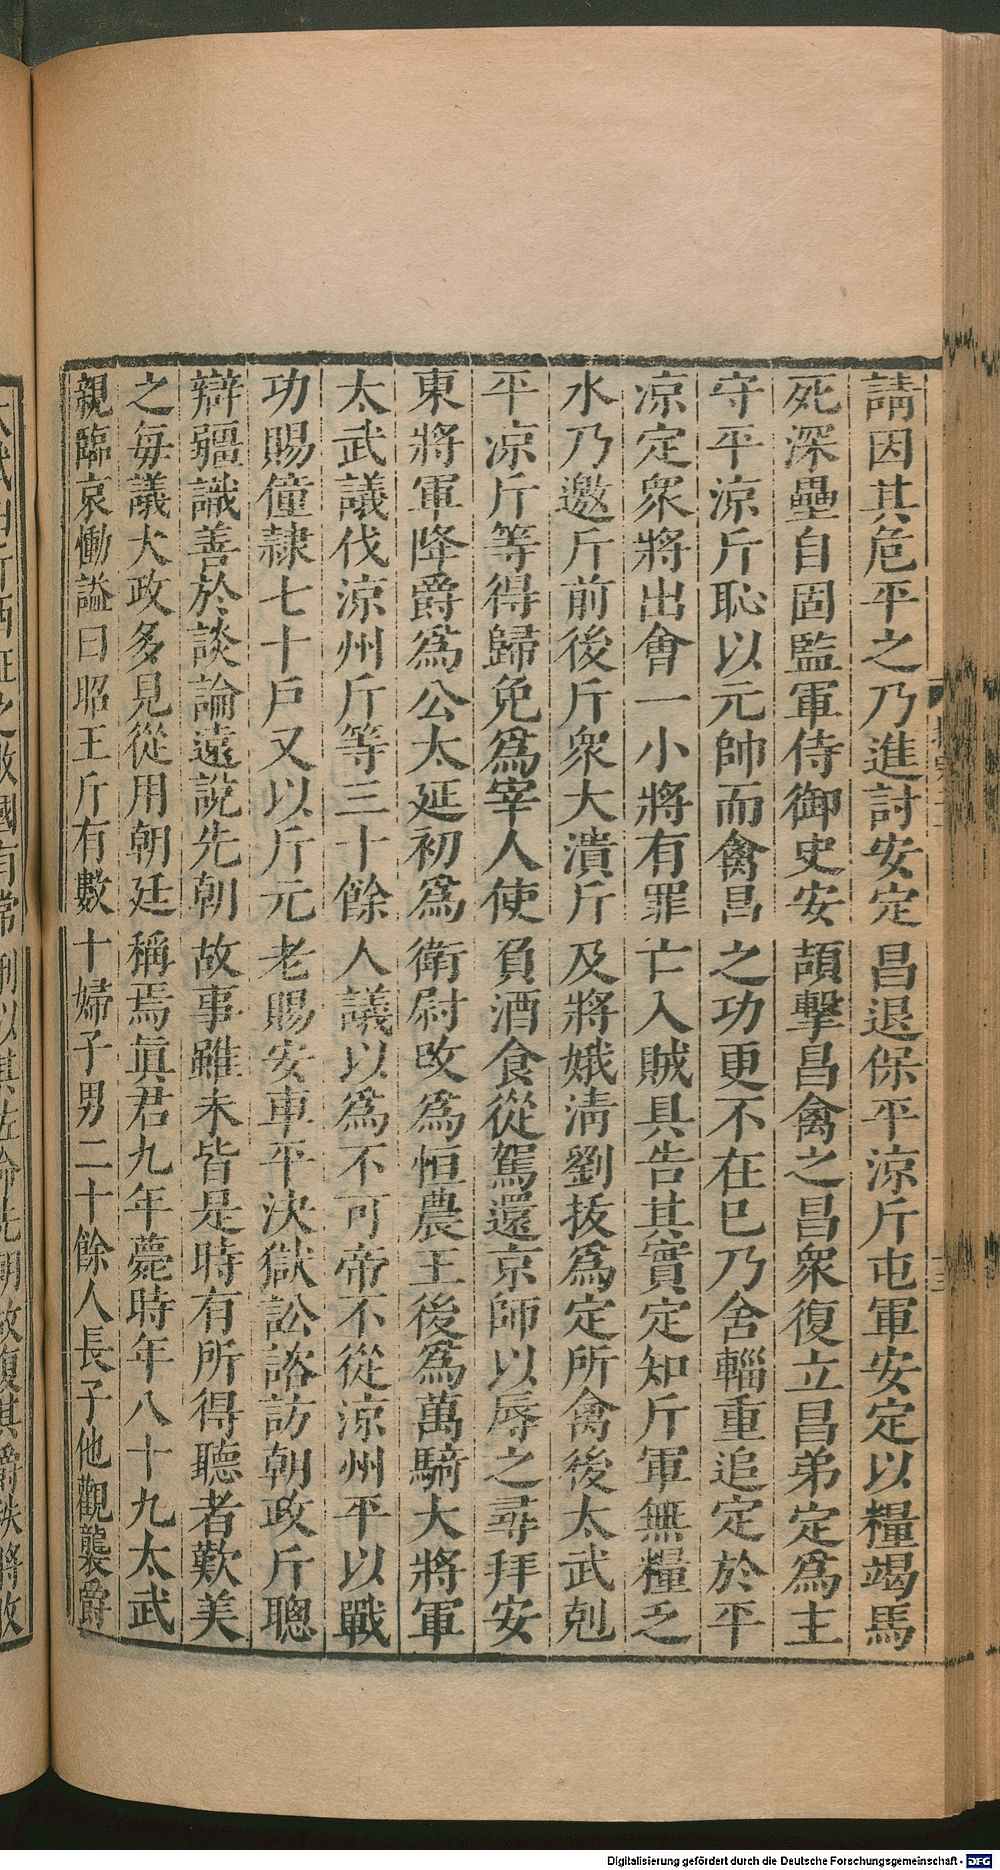 請因其危平之乃進討安定昌退保平涼斤屯軍安定以糧竭馬
死深壘自固監軍侍御史安頡擊昌禽之昌衆復立昌弟定為主
守平涼斤恥以元帥而禽昌之功更不在已乃舍輜重追定於平
涼定衆將出會一小將有罪亡入賊具告其實定知斤軍無糧乏
水乃邀斤前後斤衆大潰斤及將娥淸劉拔爲定所禽後太武剋
平涼斤等得歸免爲宰人使負酒食從駕還京師以辱之尋拜安
東將軍降爵爲公太延初爲衛尉改爲恒農王後爲萬騎大將軍
太武議伐涼州斤等三十餘人議以爲不可帝不從涼州平以戰
功賜僮隷七十戶又以斤元老賜安車平決獄訟諮訪朝政斤聰
辯疆識善於談論遠說先朝故事雖未皆是時有所得聽者歎美
之每議大政多見從用朝廷稱焉眞君九年薨時年八十九太武
親臨哀慟謚曰昭王斤有數十婦子男二十餘人長子他觀襲爵
Digitalisierung gefördert durch die Deutsche Forschungsgemeinschaft - DFG